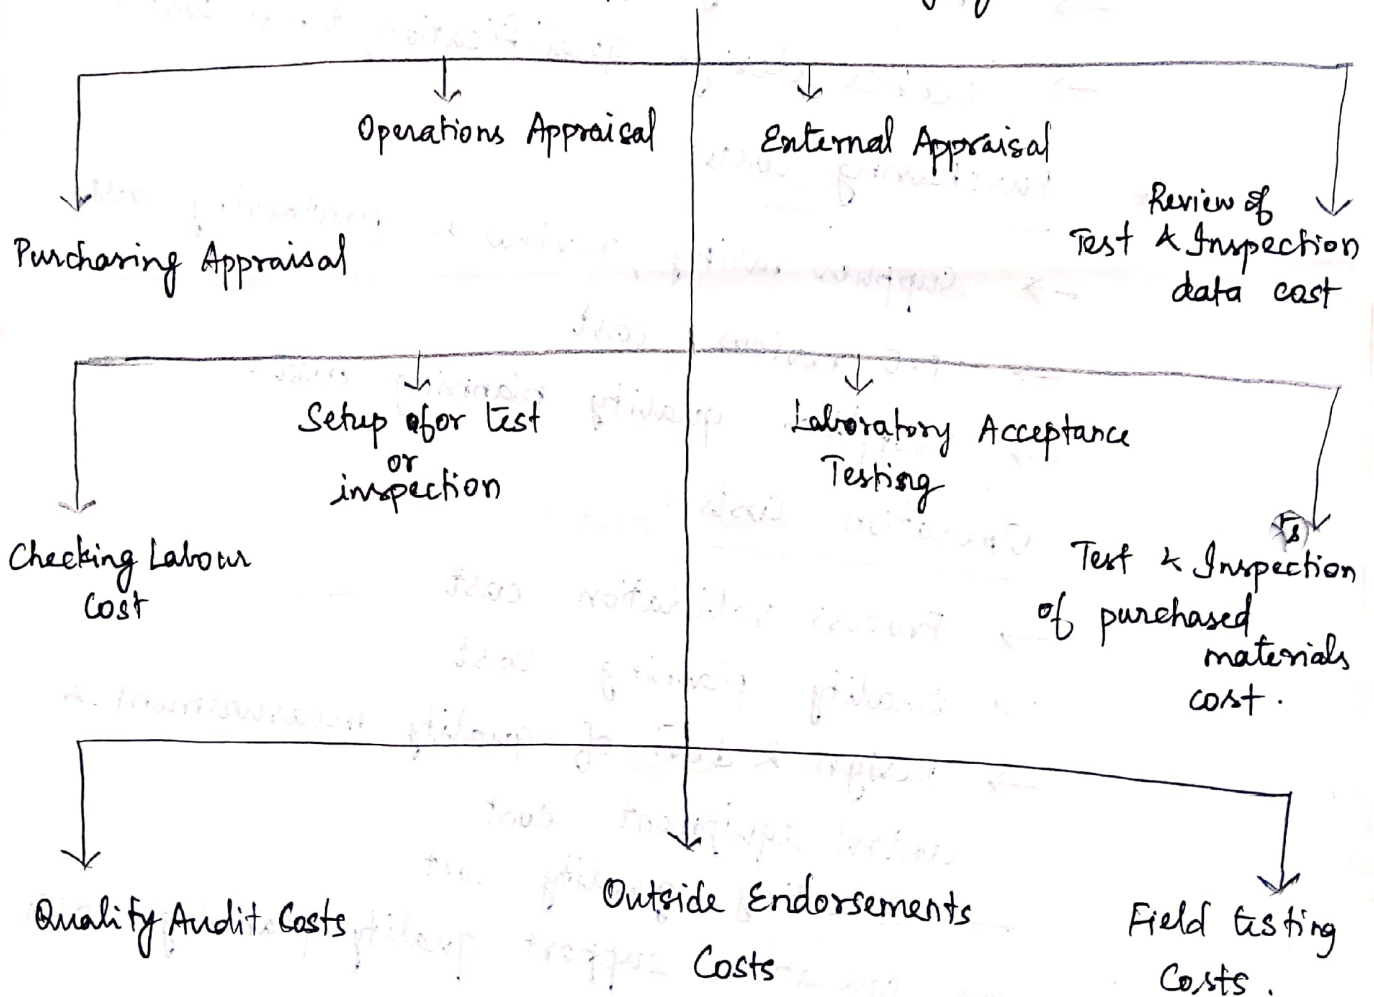 Operations Appraisal
External Appraisal
Purchasing Appraisal
Review of
Test & Inspection
data cost
Setup for test
or
inspection
Laboratory Acceptance
Testing
Checking Labour
Cost
Test & Inspection
of purchased
materials
cost.
Quality Audit Costs
Outside Endorsements
Costs
Field testing
Costs.